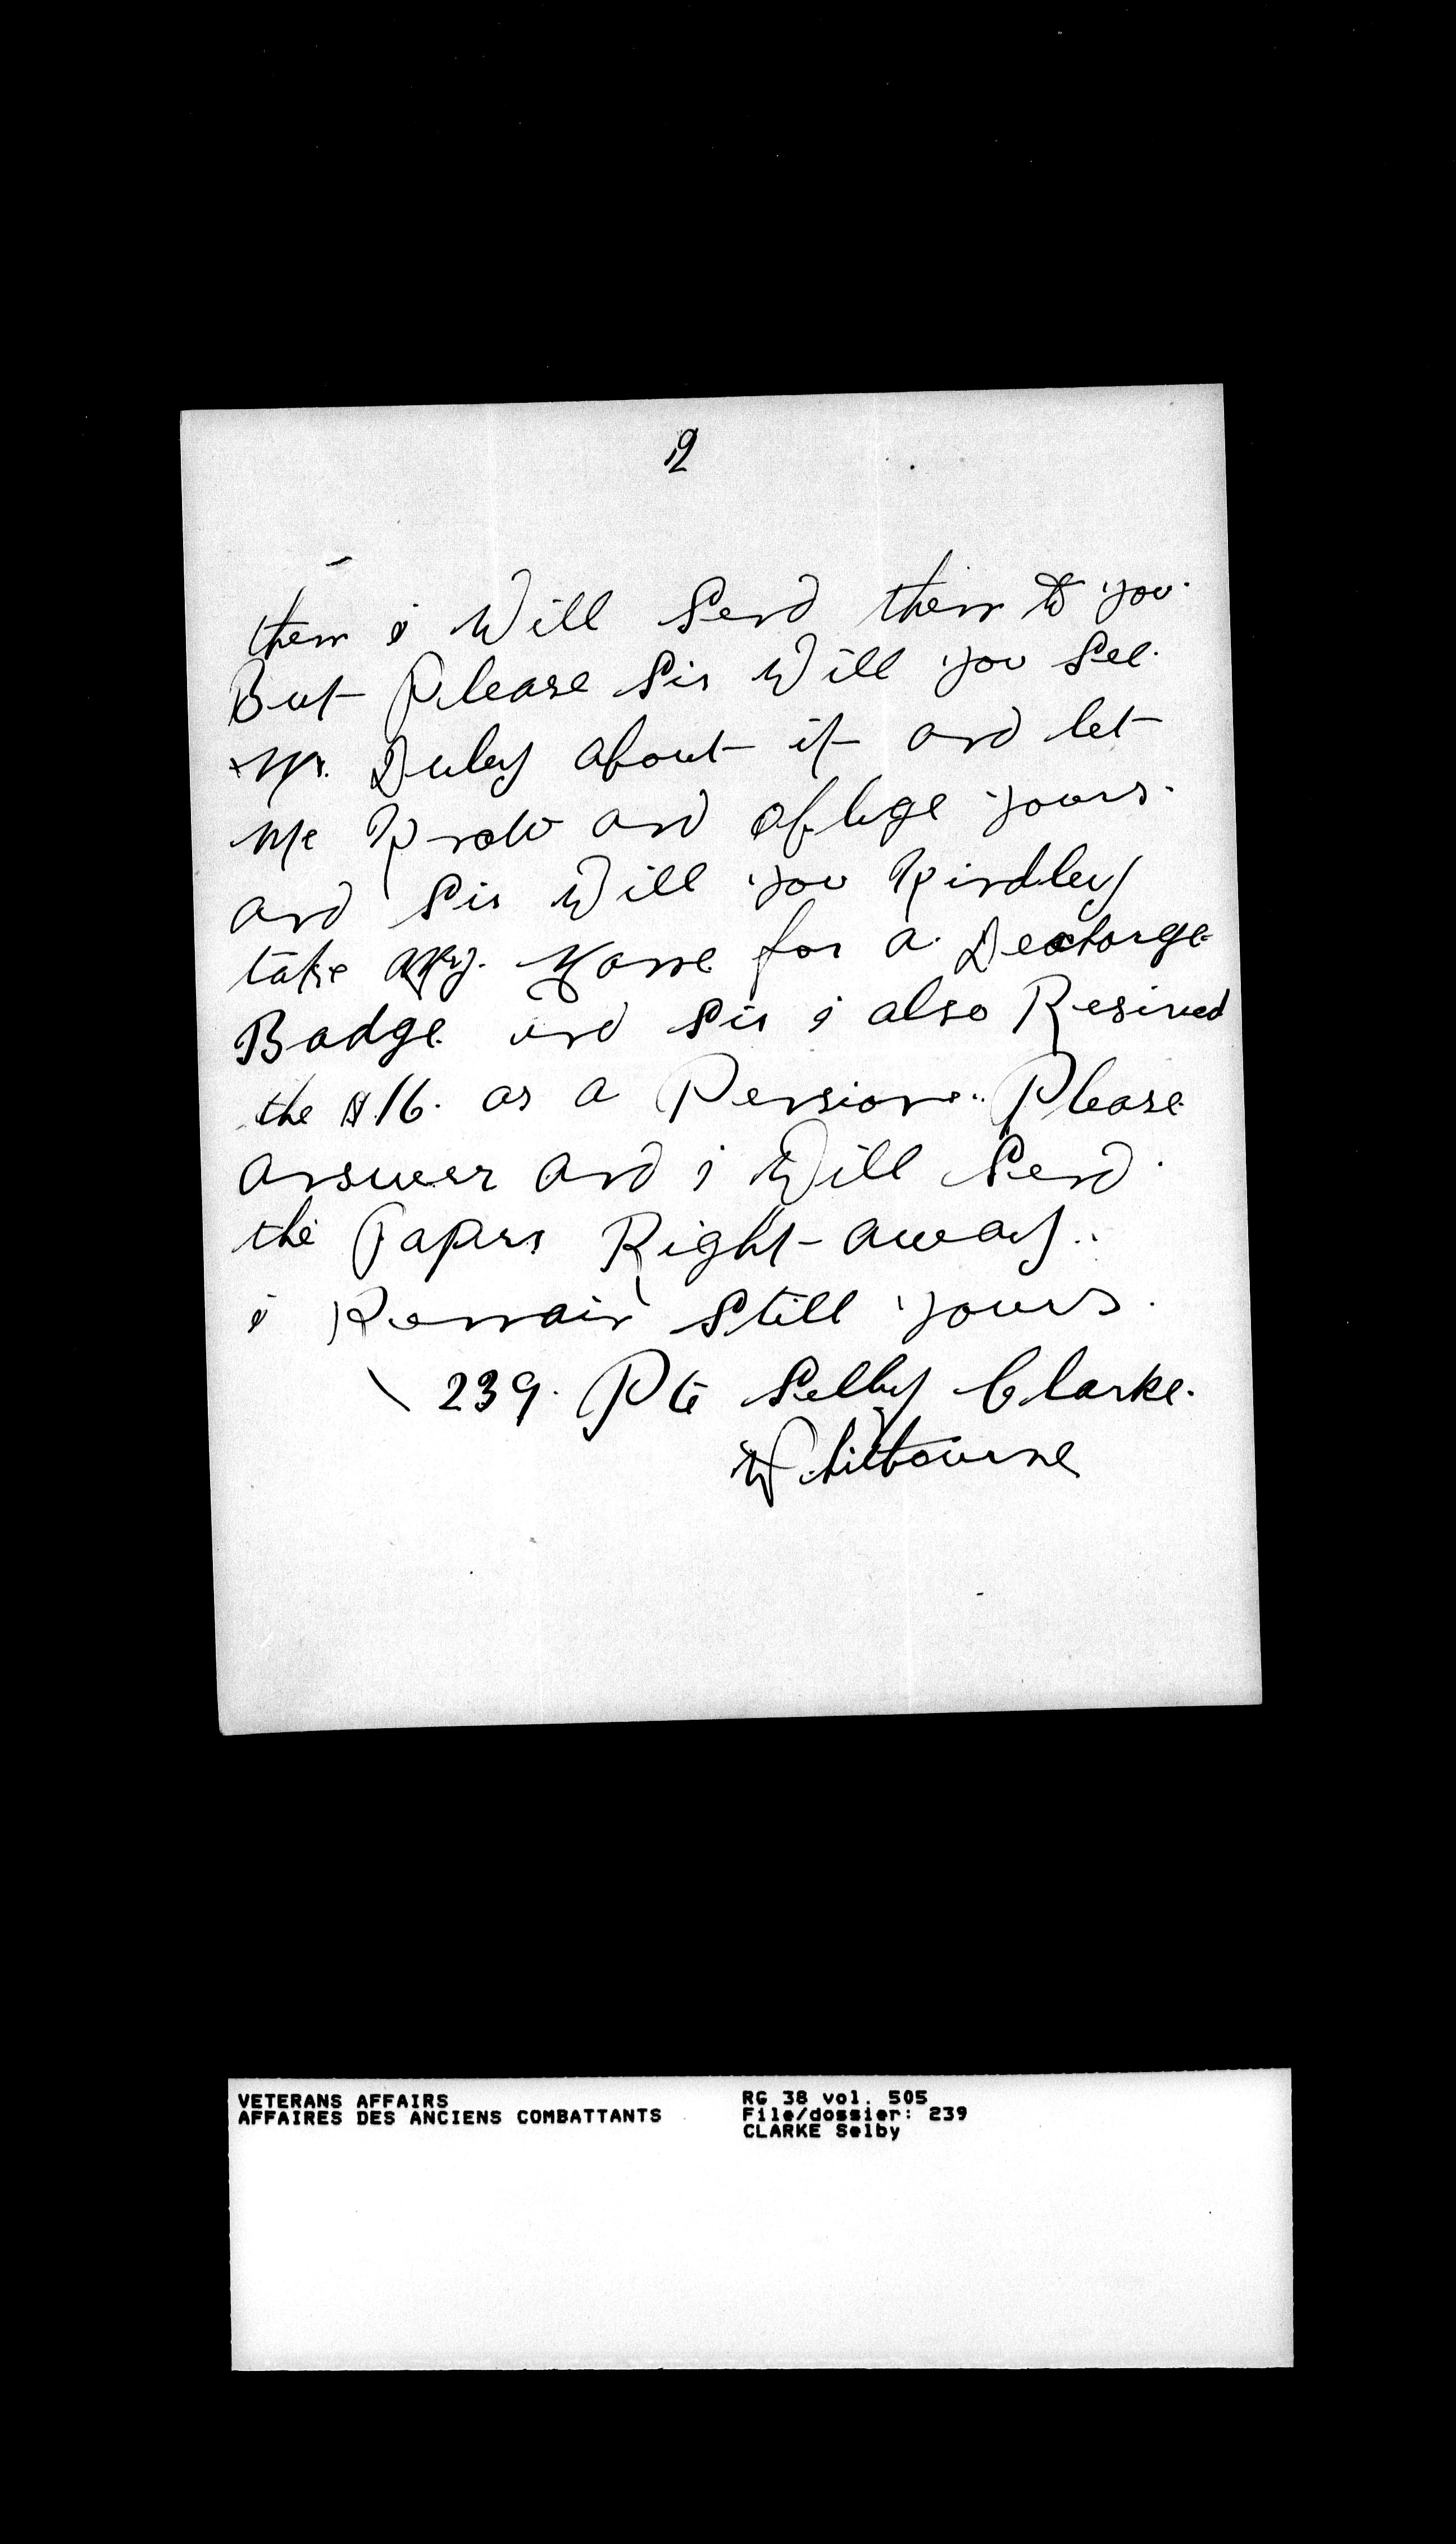 2
them i Will Send them to you.
But Please Sir Will you See.
Mr. Duley about it and let
Me Know and oblige yours.
and Sir Will you Kindley
take my. Name for a Decharge
Badge and Sir i also Resived
the $16. as a Pension.. Please
answer and i Will Send.
the Papers Right away..
i Remain Still yours.
239. Pte Selby Clarke.
Whitbourne
VETERANS AFFAIRS
AFFAIRES DES ANCIENS COMBATTANTS
RG 38 vol. 505
File/dossier: 239
CLARKE Selby